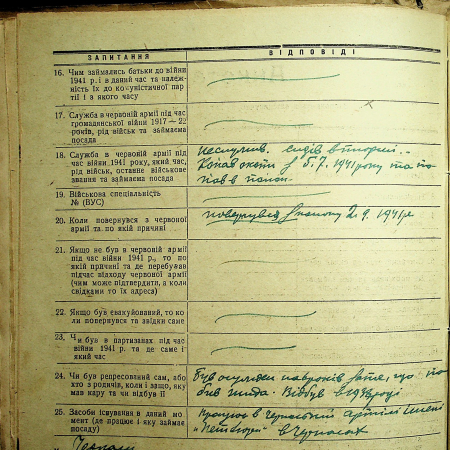 ЗАПИТАННЯ
ВІДПОВІДІ
16. Чим займались батьки до війни
1941 р. і в даний час та належ-
ність їх до комуністичної пар-
тії і з якого часу
17. Служба в червоній армії під час
громадянської війни 1917 — 22
років, рід військ та займаєма
посада
Неслужив. сидів в тюрмі. -
18. Служба в червоній армії під час
війни 1941 року, який час,
рід військ, останнє військове
звання та займаєма посада
Копав окопи з 5.7.1941 року та по-
пав в полон -
19. Військова спеціяльність
№ (ВУС)
20. Коли повернувся з червоної
армії та по якій причині
повернувся з полону 2.9.1941р
21. Якщо не був в червоній армії
під час війни 1941 р., то по
якій причині та де перебував
підчас відходу червоної армії
(чим може підтвердити, а коли
свідками то їх адреса)
22. Якщо був евакуйований, то ко-
ли попернувся та звідки саме
23. Чи був в партизанах під час
війни 1941 р. та де саме і
який час
24. Чи був репресований сам, або
хто з родичів, коли і защо, як
мав кару та чи відбув її
Був осуджен на років зате, що по-
бив жида. Відбув в році
25. Засоби існування в даний мо-
мент (де працює і яку займає
посаду)
Працює в артілі імені
в Черкасах